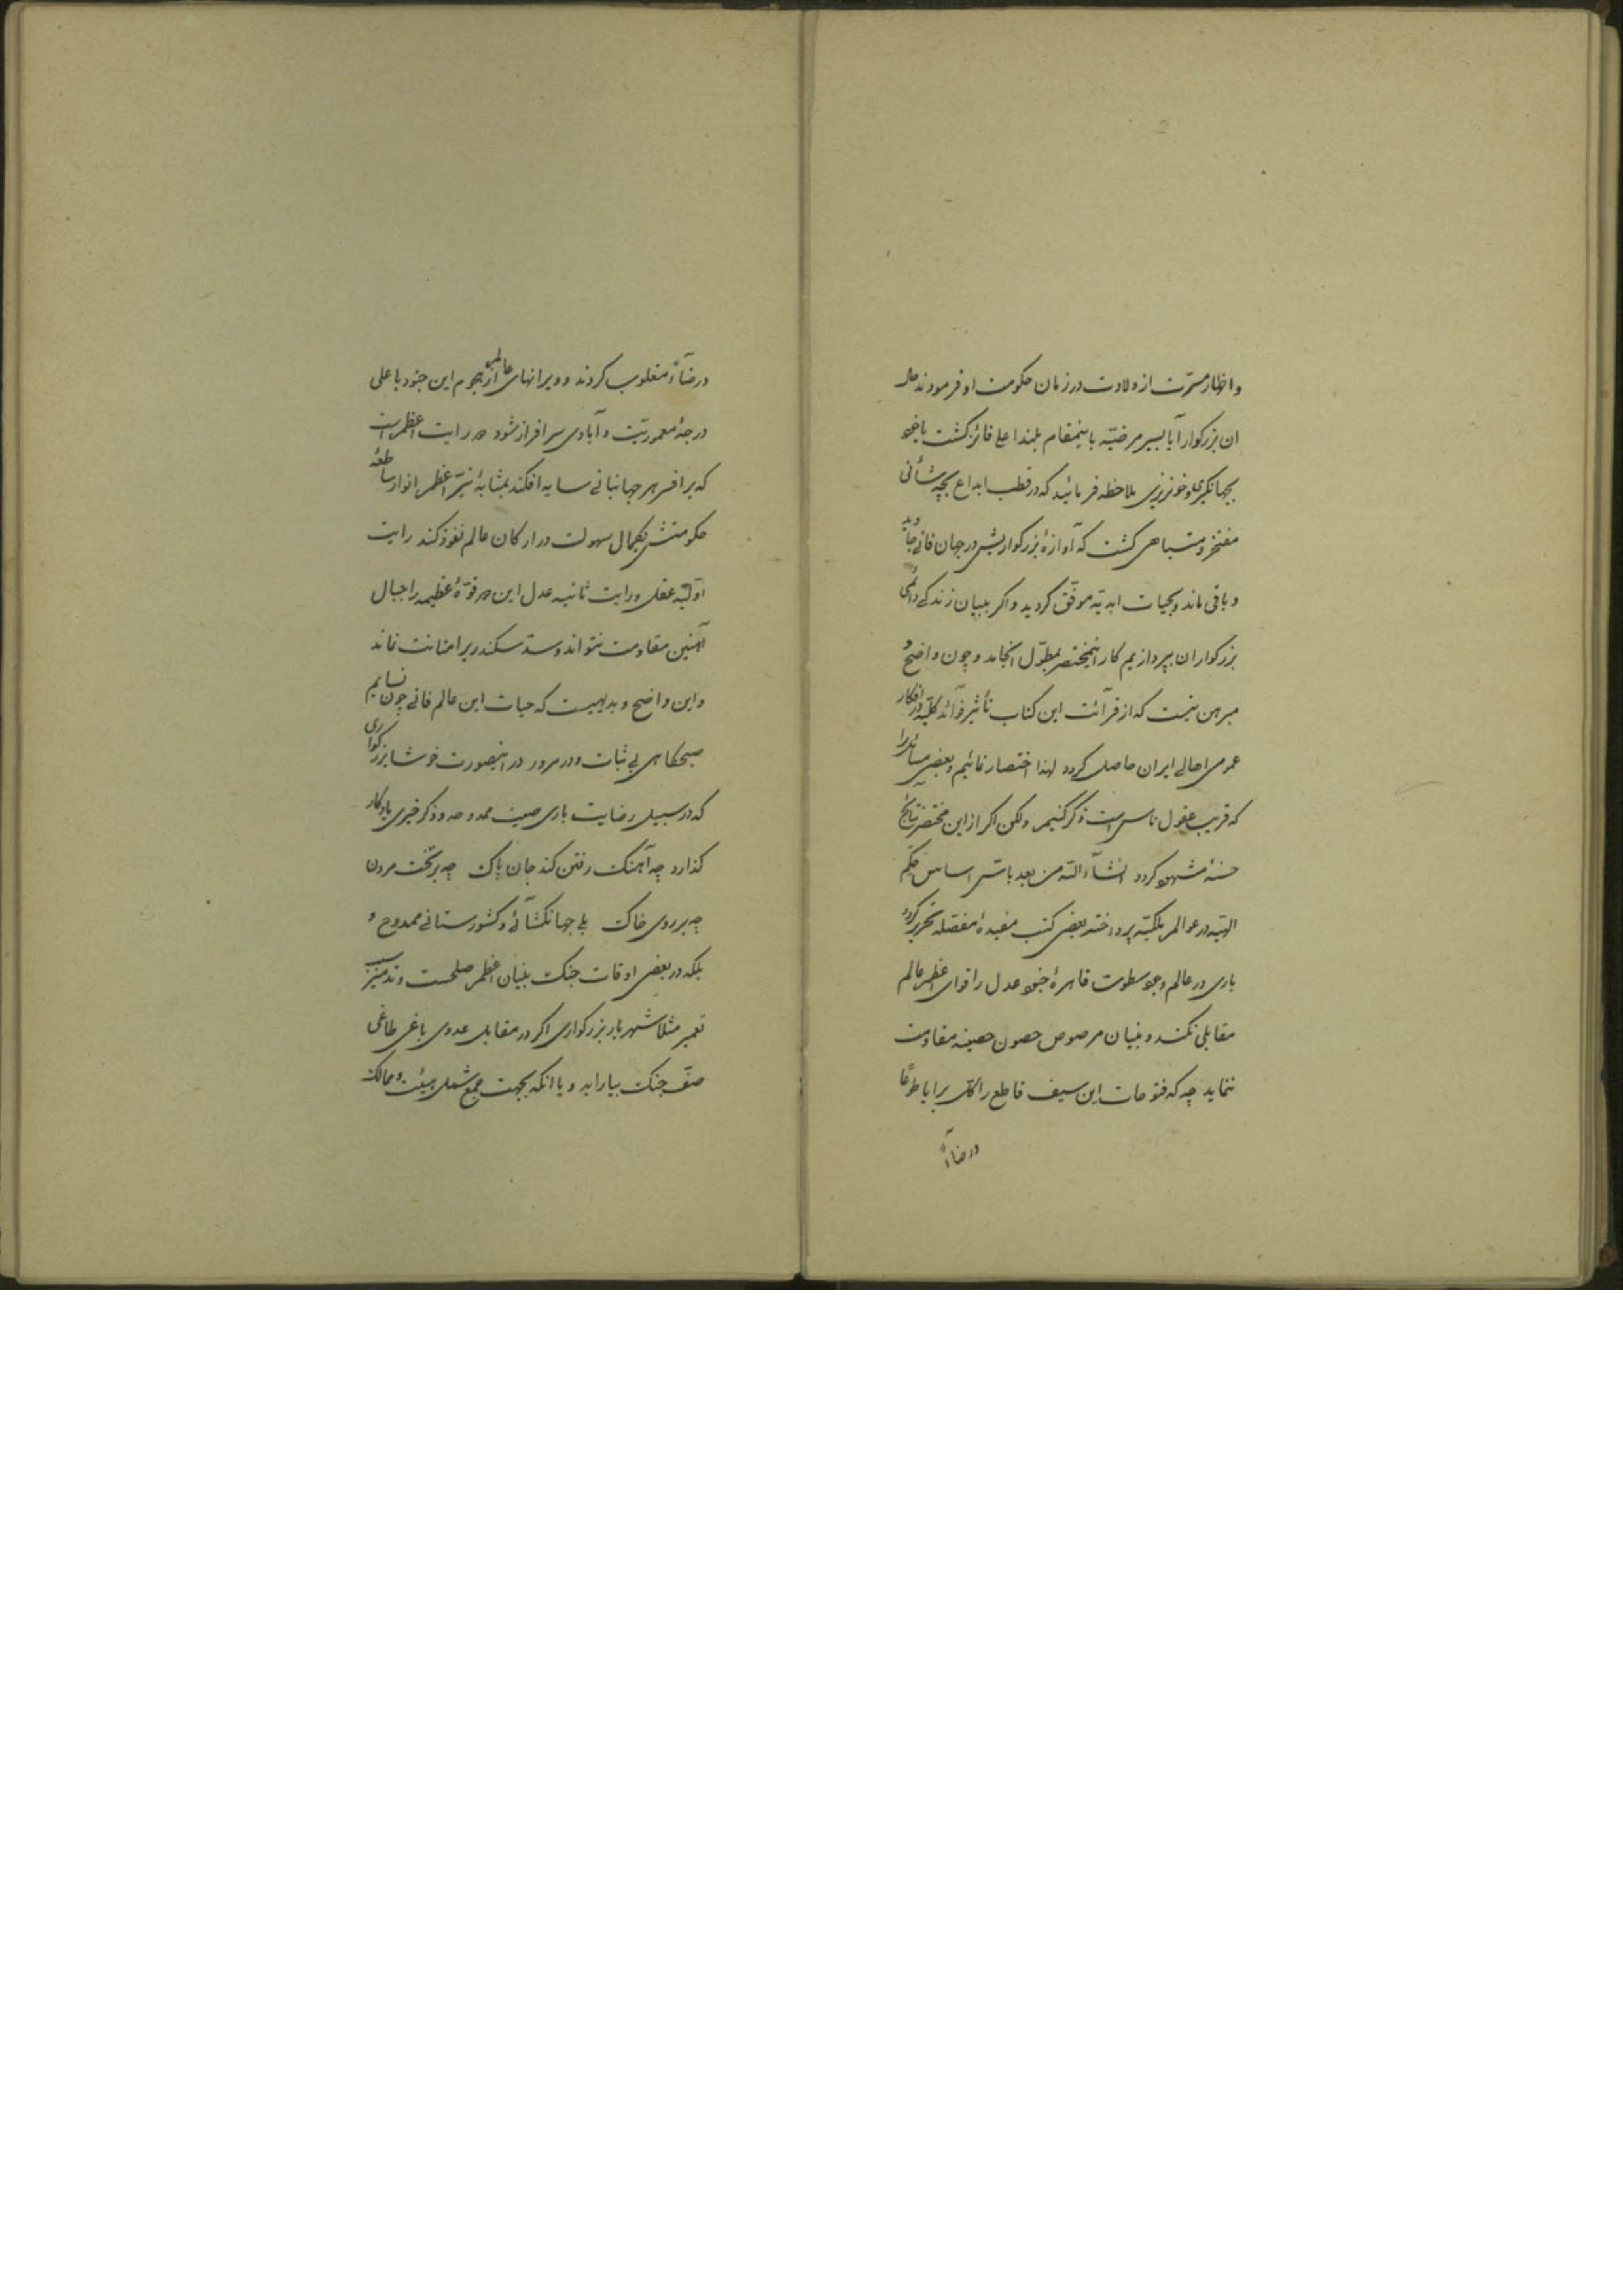 و اظهار مسرّت از ولادت در زمان حکومت او فرمودند حال
ان بزرکوار آیا بسیر مرضیّه باینمقام بلند اعلی فائز کشت یاخود
بجهانکیری و خونریزی ملاحظه فرمائید که در قطب ابداع بچه شأنی
مفتخر و متباهی کشت که آوازهٔ بزرکواریش در جهان فانی جاوید
و باقی ماند و بحیات ابدیّه موفّق کردید و اکر ببیان زندکی دائمی
بزرکواران بپردازیم کار اینمختصر بمطوّل انجامد و چون واضح و
مبرهن نیست که از قرآئت این کتاب تأثیر فوآئد کلّیّه در افکار
عمومی اهالی ایران حاصل کردد لهذا اختصار نمائیم و بعضی مسائل را
که قریب عقول ناس است ذکر کنیم ولکن اکر از این مختصر نتایج
حسنه مشهود کردد انشآء اللّه من بعد باسّ اساس حکم
الهیّه در عوالم ملکیّه پرداخته بعضی کتب مفیدهٔ مفصّله تحریر کردد
باری در عالم وجود سطوت قاهرهٔ جنود عدل را قوای اعظم عالم
مقابلی نکند و بنیان مرصوص حصون حصینه مقاومت
ننماید چه که فتوحات این سیف قاطع را کلّ برایا طوعًا
و رضآءً
و رضآءً مغلوب کردند و ویرانهای عالم از هجوم این جنود باعلی
درجهٔ معموریّت و آبادی سرافراز شود دو رایت اعظم است
که بر افسر هر جهانبانی سایه افکند بمثابهٔ نیّر اعظم انوار ساطعهٔ
حکومتش بکمال سهولت در ارکان عالم نفوذ کند رایت
اوّلیّه عقل و رایت ثانیه عدل این دو قوّهٔ عظیمه را جبال
آهنین مقاومت نتواند و سدّ سکندریرا متانت نماند
و این واضح و بدیهیست که حیات این عالم فانی چون نسایم
صبحکاهی بی ثبات و در مرور در اینصورت خوشا بزرکواری
که در سبیل رضایت باری صیت ممدوحه و ذکر خیری یادکار
کذارد چه آهنک رفتن کند جان پاک چه بر تخت مردن
چه بر روی خاک بلی جهانکشآئی و کشورستانی ممدوح و
بلکه در بعضی اوقات جنک بنیان اعظم صلحست و تدمیر سبب
تعمیر مثلاً شهریار بزرکواری اکر در مقابل عدوی باغی طاغی
صفّ جنک بیاراید و یا انکه بجهت جمع شمل هیئت و ممالک